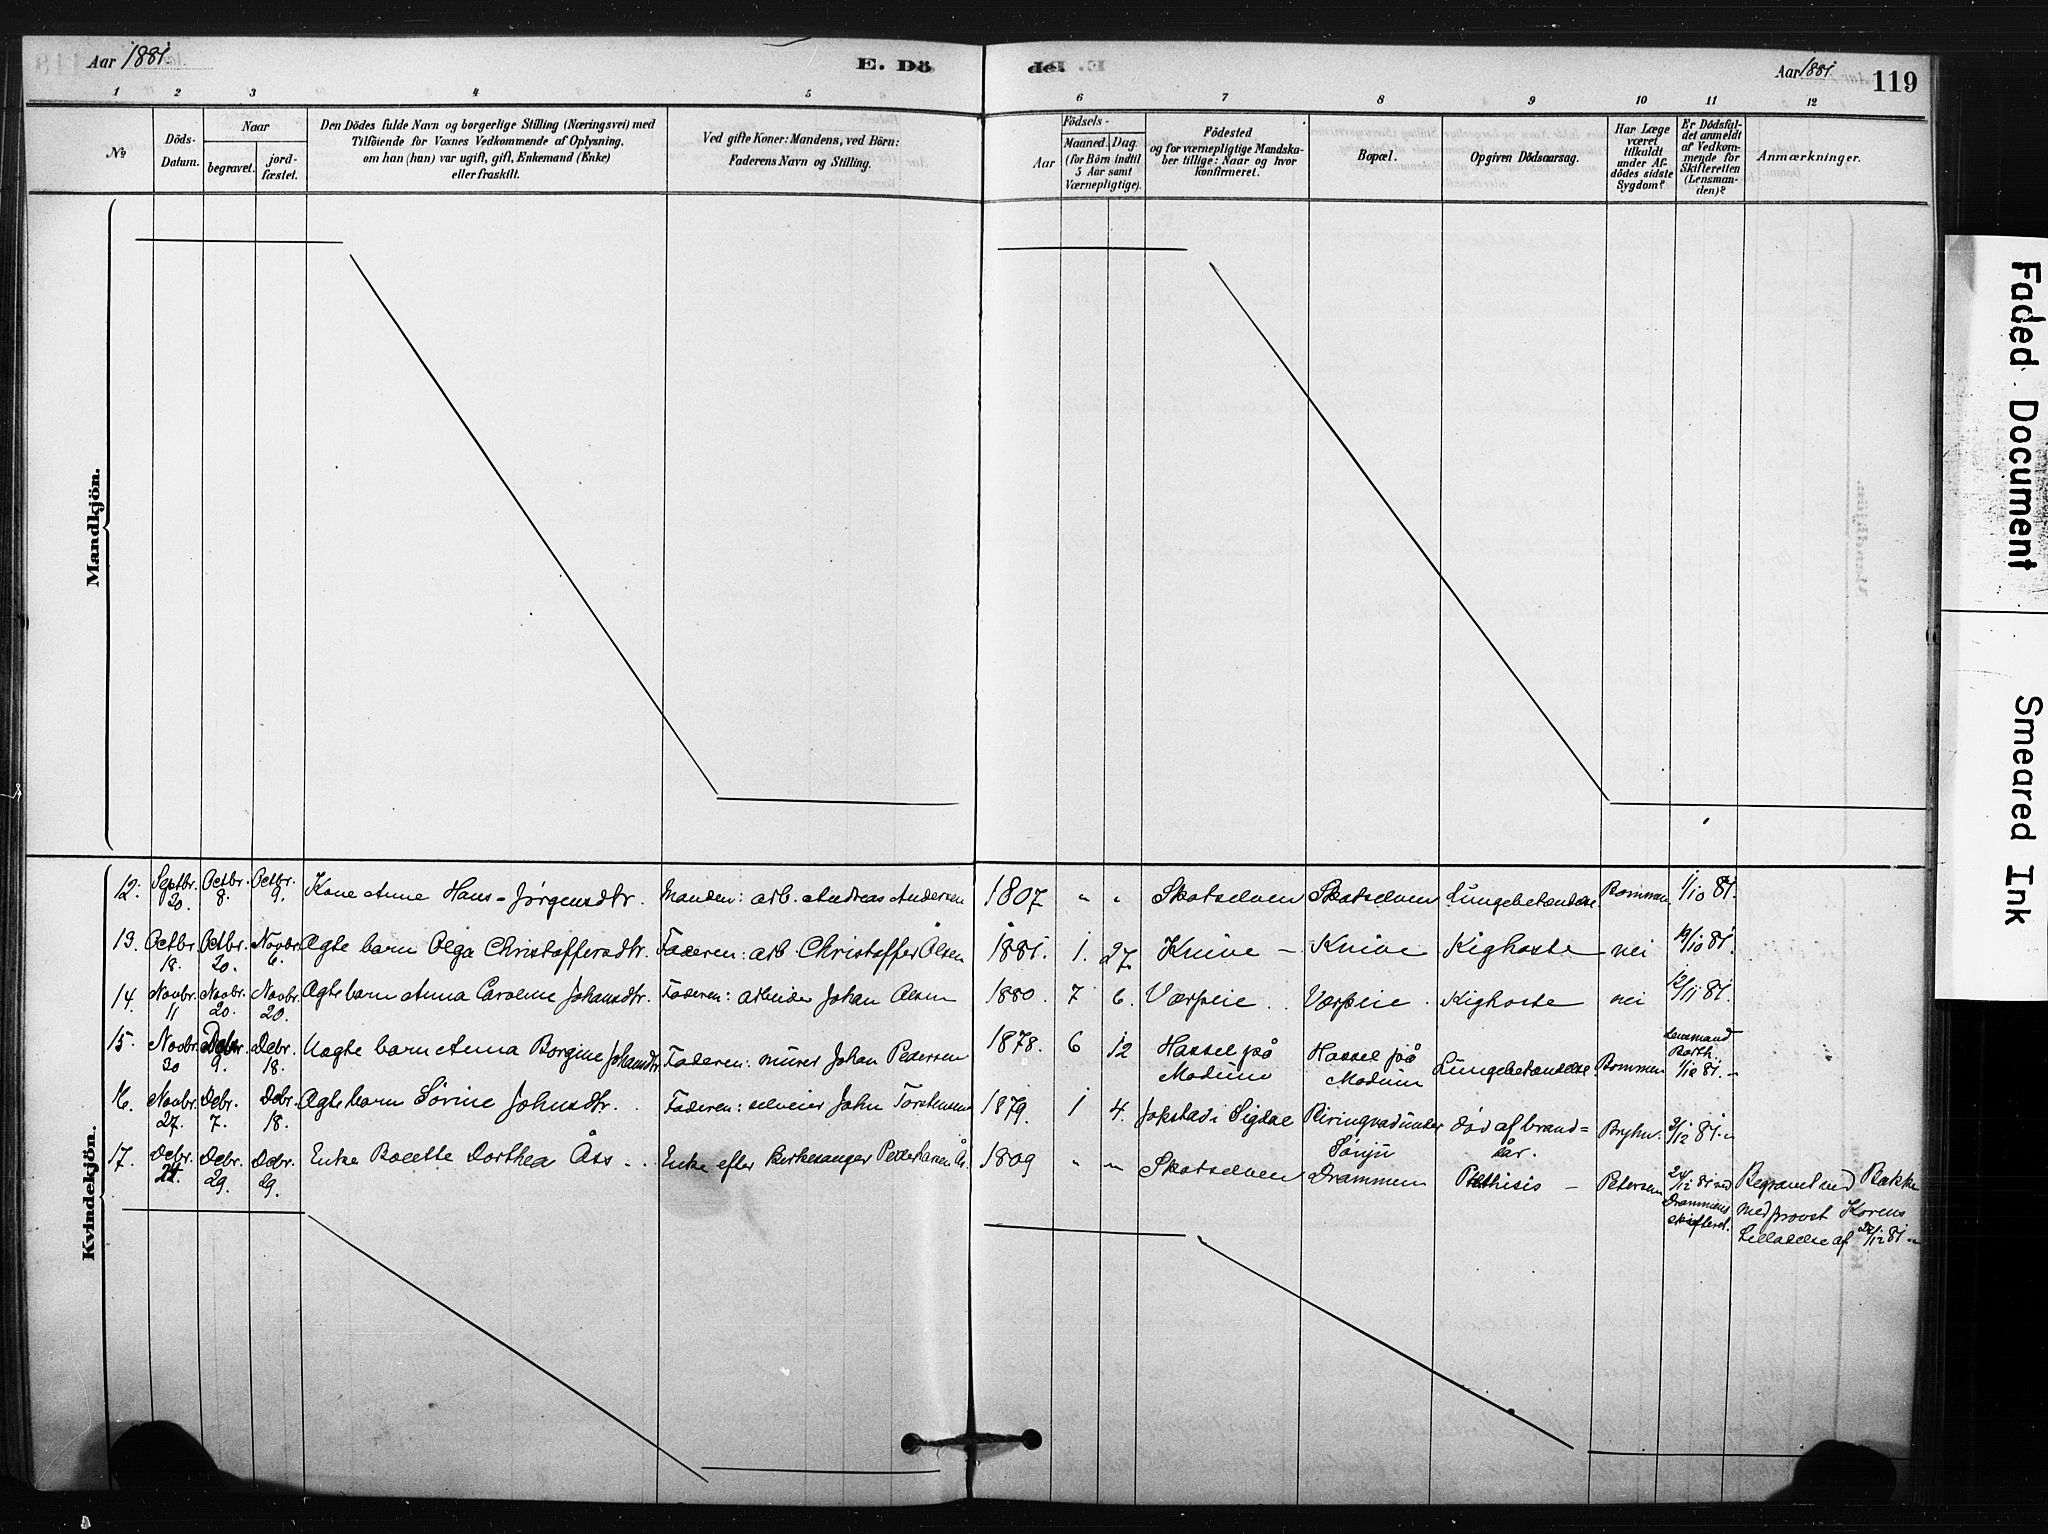 Aar 1881.
E. Dö
de.
Aar 1881.
119
1 2 3 4 5 6 7 8 9 10 11 12
No
Döds-Datum.
Naar
begravet.
jord-fæstet.
Den Dödes fulde Navn og borgerlige Stilling (Næringsvei) med
Tilföiende for Voxnes Vedkommende af Oplysning,
om han (hun) var ugift, gift, Enkemand (Enke)
eller fraskilt.
Ved gifte Koner: Mandens, ved Börn:
Faderens Navn og Stilling.
Födsels-
Aar
Maaned. Dag.
(for Börn indtil
5 Aar samt
Værnepligtige).
Födested
og for værnepligtige Mandska-
ber tillige: Naar og hvor
konfirmeret.
Bopæl.
Opgiven Dödsaarsag.
Har Læge
været
tilkaldt
under Af-
dödes sidste
Sygdom?
Er Dödsfal-
det anmeldt
af Vedkom-
mende for
Skifteretten
(Lensman-
den)?
Anmærkninger.
Mandkjön.
Kvindekjön.
12. Septbr. 20. Octbr. 8. Octbr. 9. Kone Anne Hans-Jørgensdtr. Manden: arb. Andreas Andersen 1807 " " Skotselven Skotselven Lungebetændelse Bommen 1/10 81.
13. Octbr. 18. Octbr. 20. Novbr. 6. Ægte barn Olga Christoffersdtr. Faderen: arb. Christoffer Olsen 1881. 1. 27. Knive – Knive Kighoste nei 19/10 81.
14. Novbr. 11 Novbr. 20. Novbr. 20. Ægte barn Anna Caroline Johansdtr. Faderen: arbeider Johan Olsen 1880. 7 6. Værpeie . Værpeie . Kighoste nei 12/11 81.
15. Novbr. 20 Debr. 9. Debr. 18. Uægte barn Anna Borgine Johansdtr. Faderen: murer Johan Pedersen 1878. 6 12 Hassel på Modum Hassel på Modum Lungebetændelse Bommen Lensmand Barth. 1/12 81. –
16. Novbr. 27. Debr. 7. Debr. 18. Ægte barn Sørine Johnsdtr. Faderen: selveier John Torstensen 1879. 1 4. Jokstad i Sigdal under død af brand=sår. Bryhn. 3/12 81. –
17. Debr. 24. Debr. 29. Debr. 29. Enke Bolette Dorthea Åss . . Enke efter kirkesanger Peder Larsen Ås. 1809 " " Skotselven Drammen Phthisis – Petersen 24/12 81 ved Drammens skifteret. Begravet ved Bakke
med provst Korens
tilladelse af 28/12 81. –
Faded Document
Smeared Ink